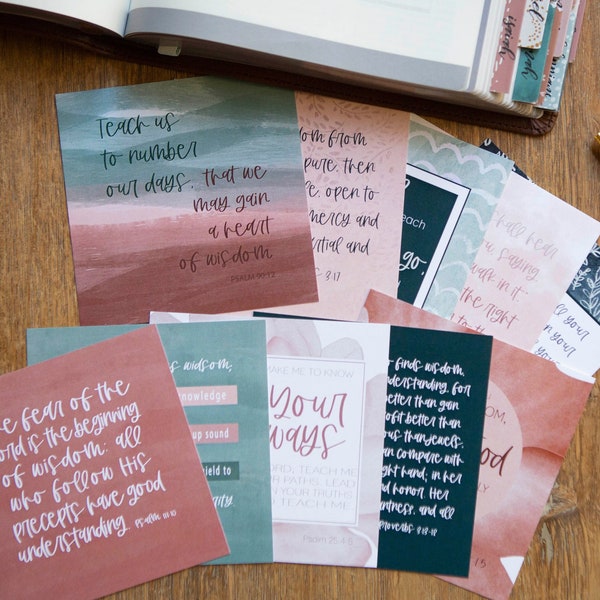 isaiah
Teach us
to number
our days, that we
may gain
a heart
of wisdom
PSALM 90:12
dom from
pure, then
e, open to
mercy and
artial and
S 3:17
each
go,
hall hear
u, saying
walk in it
the right
to the
all your
in all your
he fear of the
ord is the beginning
of wisdom; all
who follow His
precepts have good
understanding. Psalm 111:10
s widsom,
knowledge
up sound
hield to
grity
MAKE ME TO KNOW
Your
ways
ORD, TEACH ME
UR PATHS. LEAD
N YOUR TRUTHS
D TEACH ME
Psalm 25:4-5
o finds wisdom,
derstanding, for
etter than gain
ofit better than
ous than jewels,
an compare with
ght hand; in her
d honor. Her
ntness, and all
Proverbs 3:13-18
OM,
od
LY
1:5